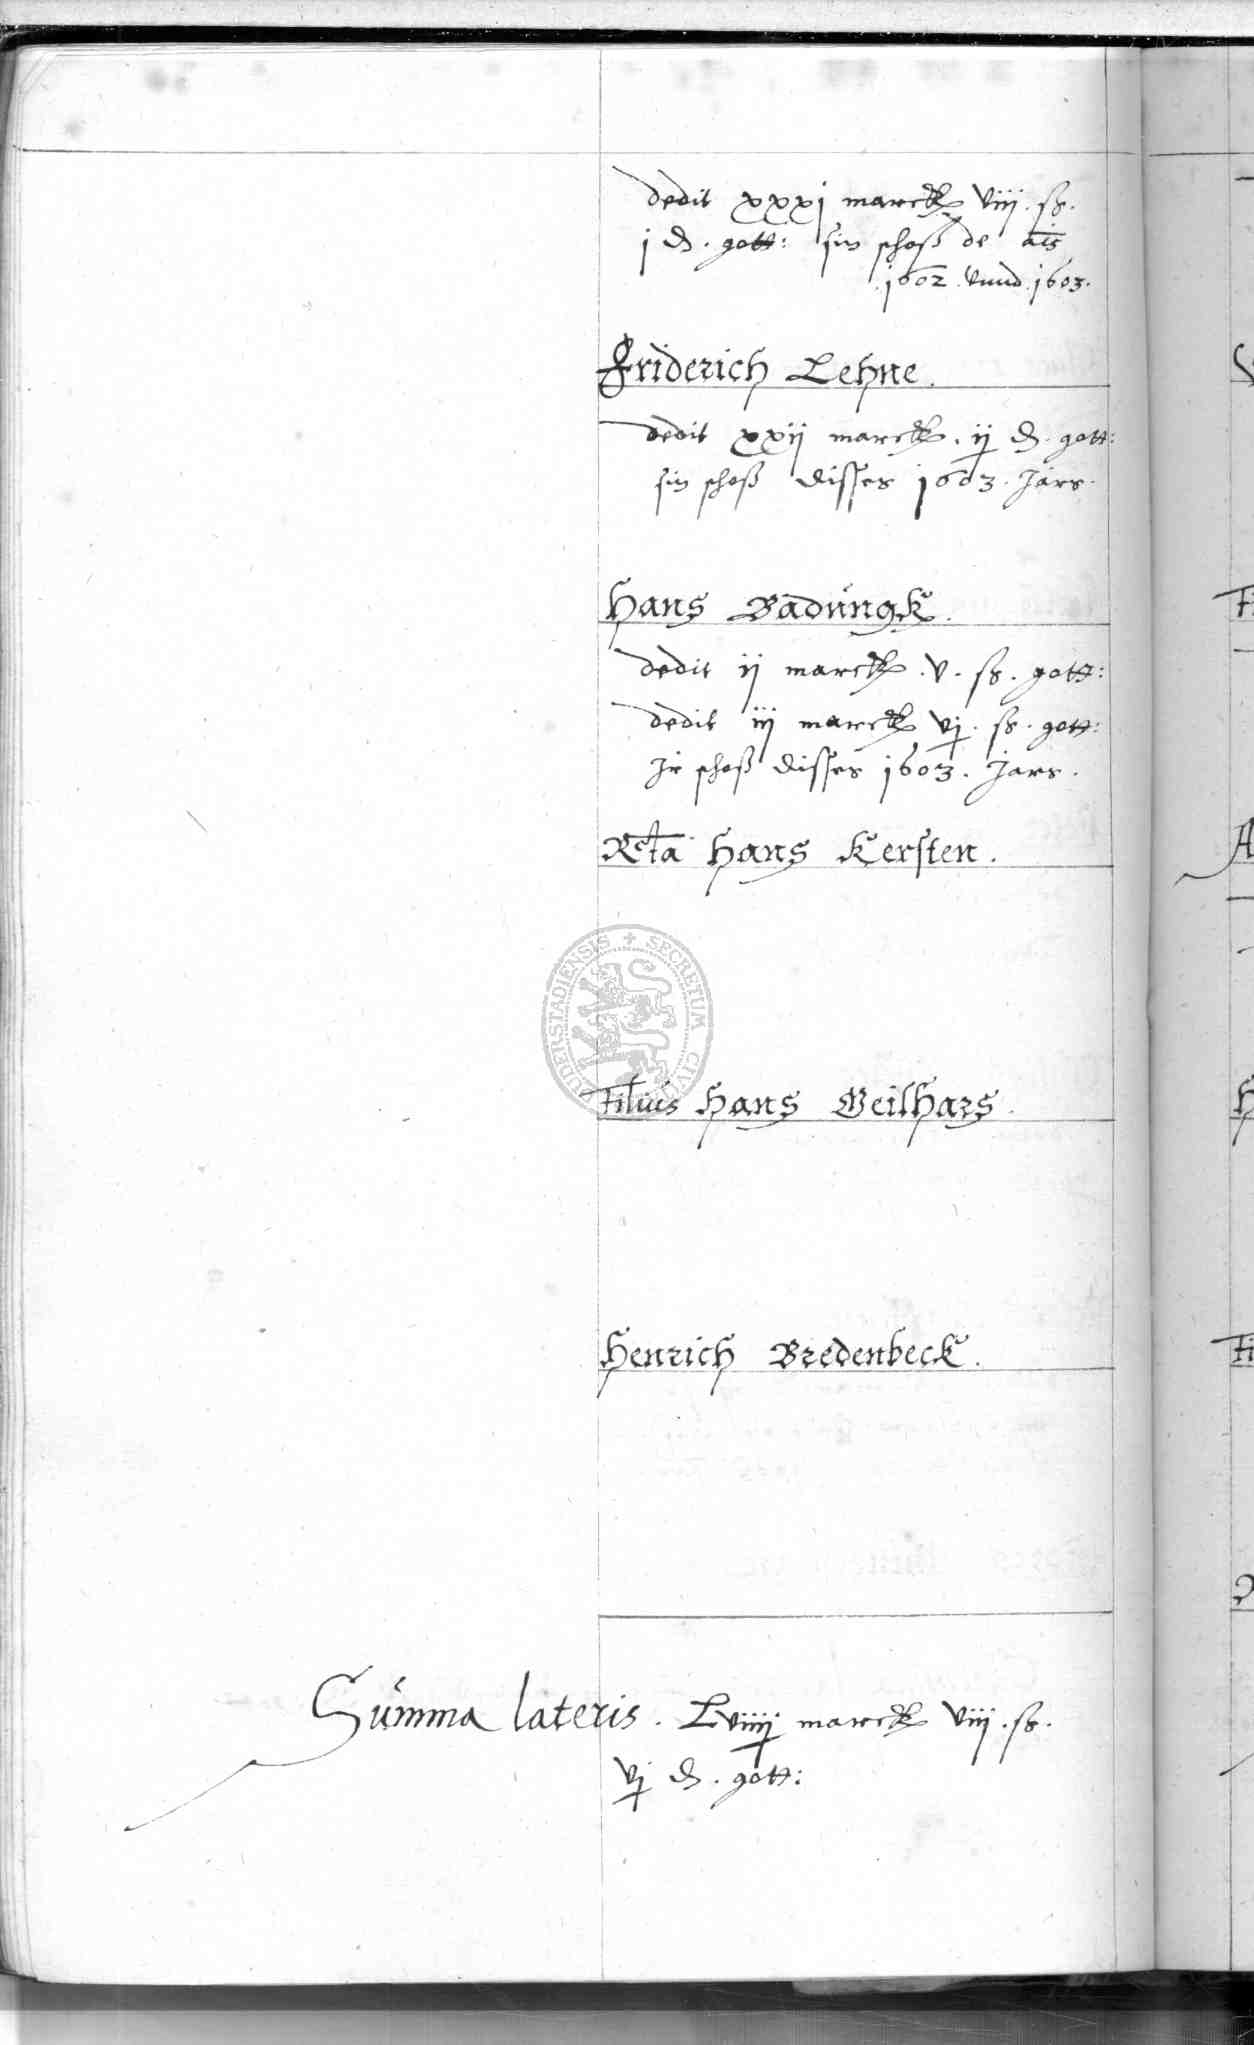 dedit xxxj marck viij. ß.
j d. gott: sin schoß de a͠is
.1602. vnnd .1603.
Friderich Lehne.
dedit xxij marck. ij d. gott:
sin schoß disses 1603. Jars.
Hans Badungk.
dedit ij marck .v. ß. gott:
dedit iij marck vj. ß. gott:
Jr schoß disses 1603. Jars.
Rcta Hans Kersten.
DUDERSTADIENSIS + SECRETUM CIVI
Filius Hans Geilhars.
Henrich Bredenbeck.
Summa lateris. Lviiij marck viij. ß.
vj d. gott: